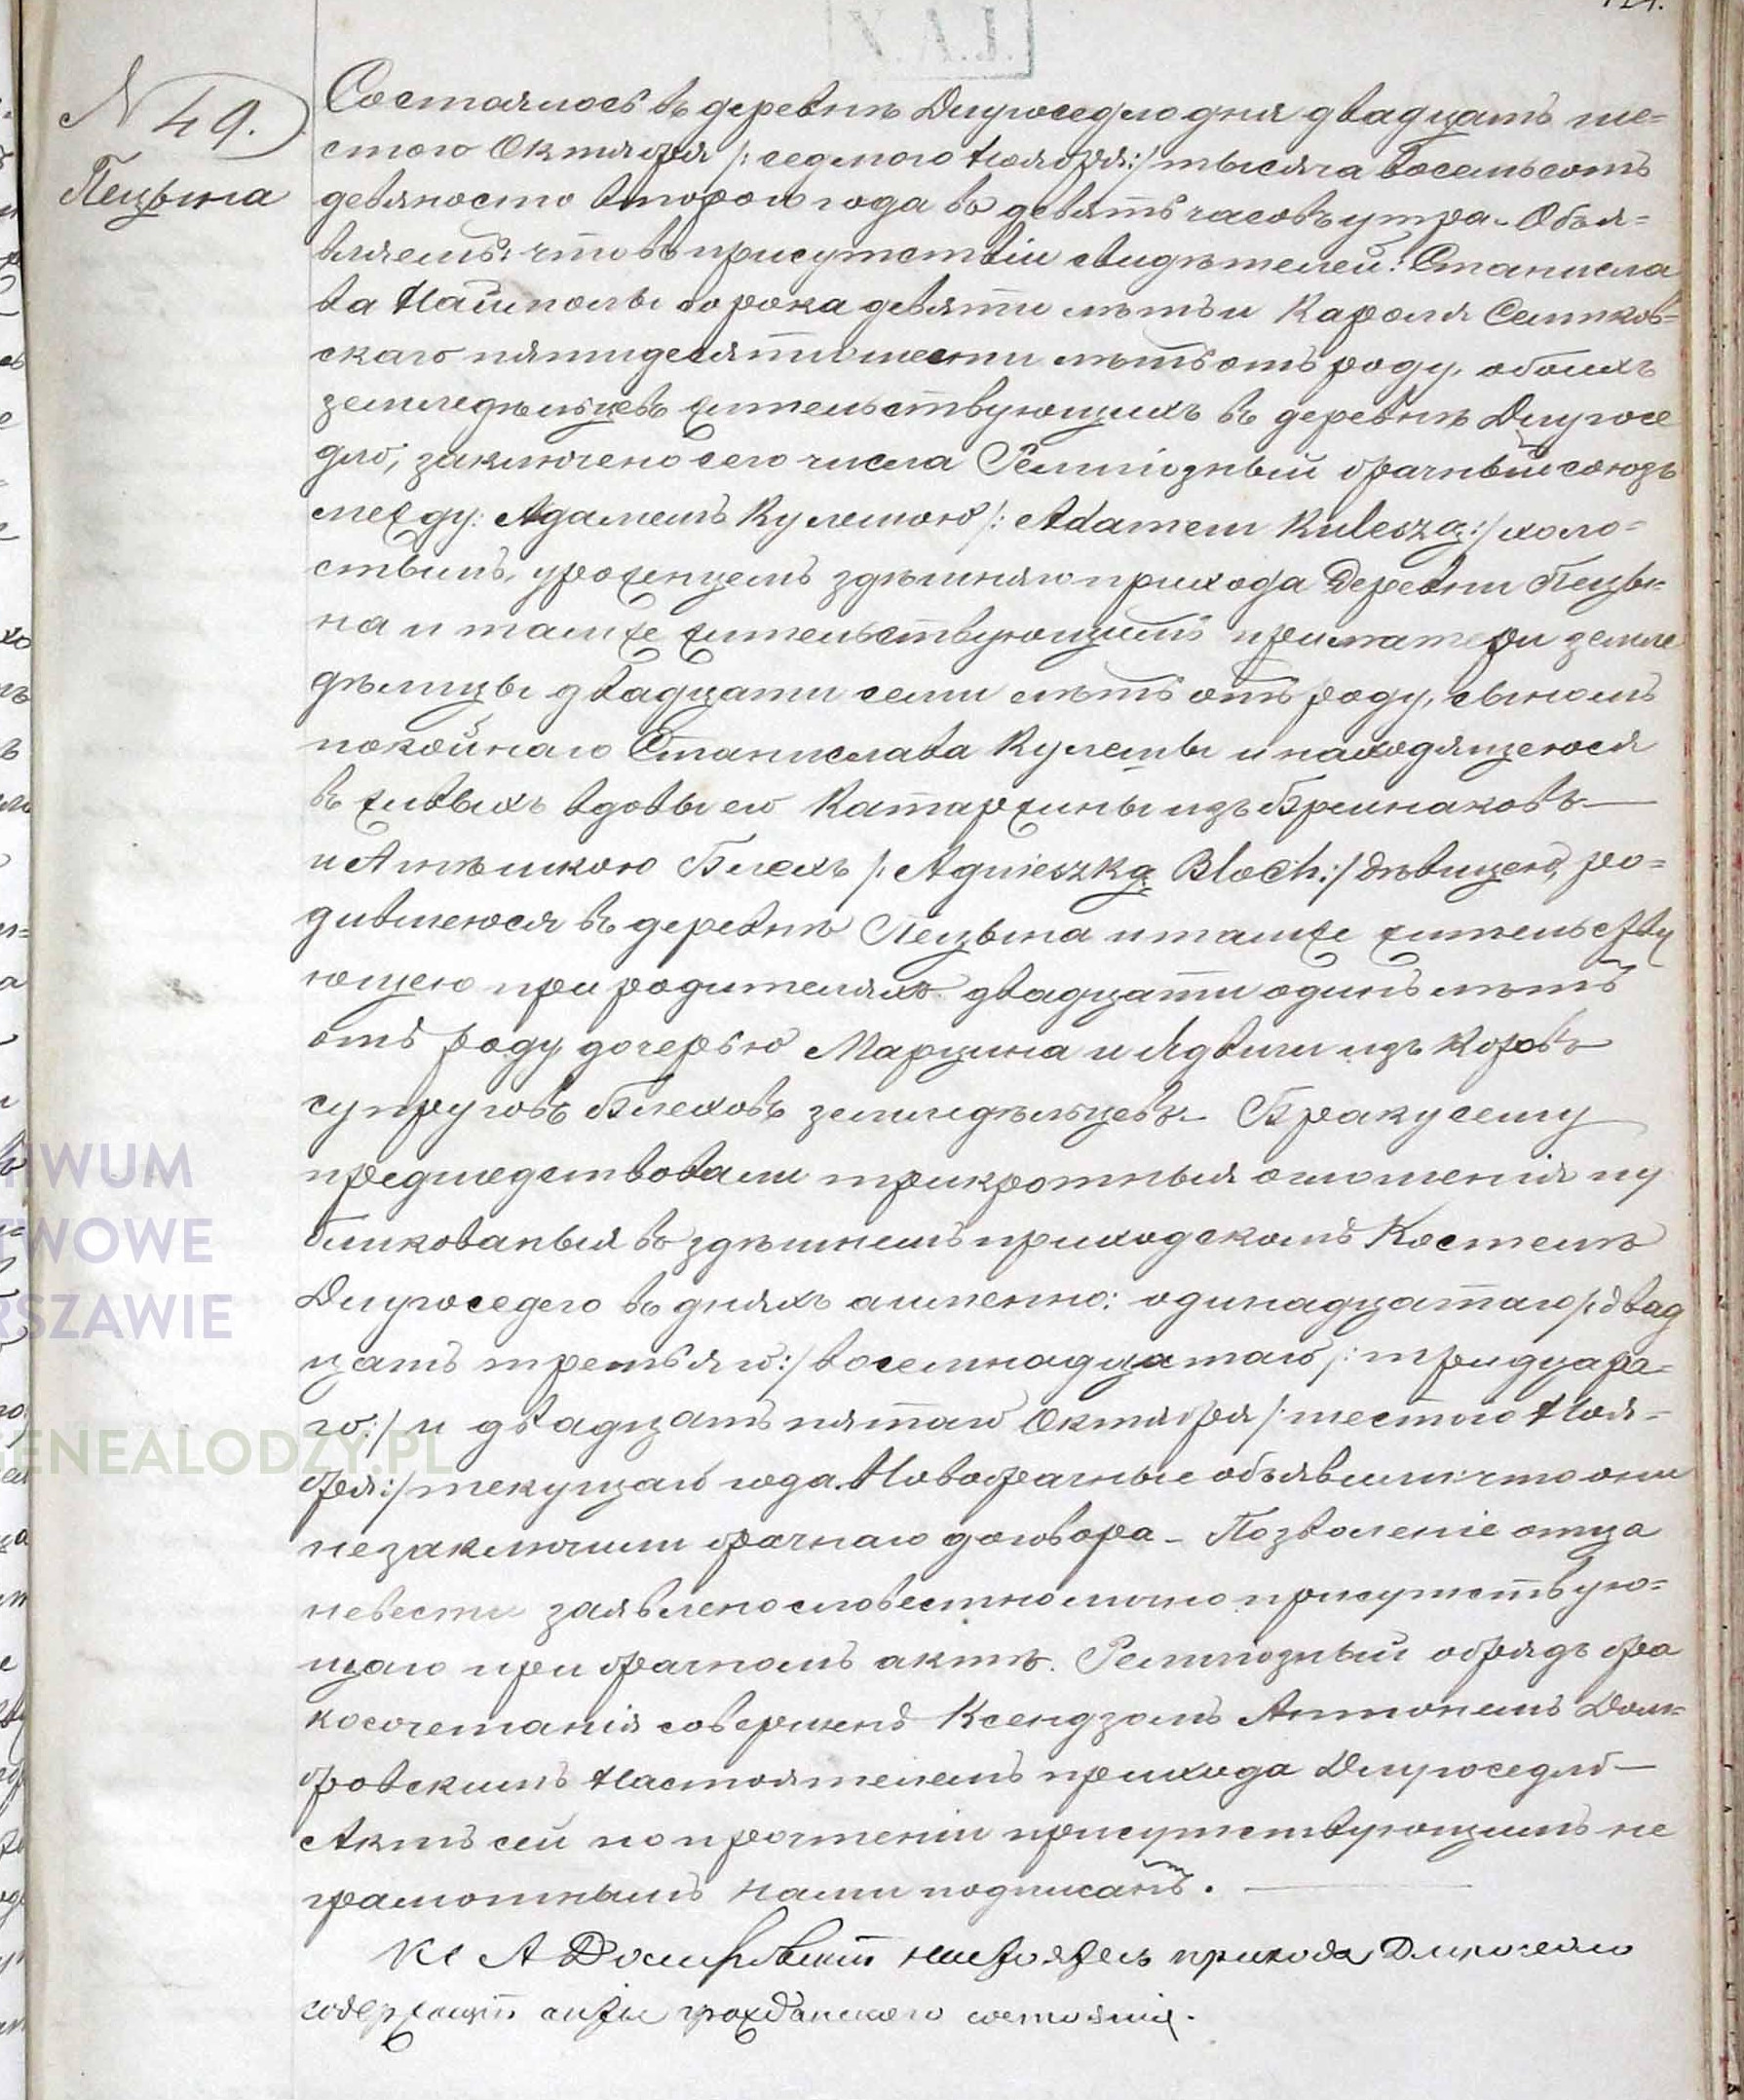 № 49.
Пецына
Состоялось въ деревнѣ Длугоседло дня двадцать ше=
стого Октября /: седмого Ноября :/ тысяча восемьсотъ
девяносто второго года въ девять часовъ утра. Объя=
вляемъ: что въ присутствіи свидѣтелей: Станисла
ва Наймолы сорока девяти лѣтъ и Кароля Ситков=
скаго пятидесяти шести лѣтъ отъ роду, обоихъ
земледѣльцевъ жительствующихъ въ деревнѣ Длугосе
дло, заключено сего числа Религіозный брачный союзъ
между: Адамемъ Кулешою /: Adamem Kuleszą :/ холо=
стымъ, уроженцемъ здѣшняго прихода Деревни Пецы=
на и тамже жительствующимъ при матери земле
дѣлицы двадцати семи лѣтъ отъ роду, сыномъ
покойнаго Станислава Кулешы и находящеюся
въ живыхъ вдовы его Катаржины изъ Бринаковъ —
и Агнѣшкою Блехъ /: Agnieszką Bloch :/ дѣвицею, ро=
дившеюся въ деревнѣ Пецына и тамже жительству
ющею при родителяхъ двадцати одинъ лѣтъ
отъ роду дочерью Марцина и Ядвиги изъ Коровъ
супруговъ Блеховъ земледѣльцевъ. Браку сему
предшедствовали трикротныя оглошенія пу
бликованыя въ здѣшнемъ приходскомъ Костелѣ
Длугоседло въ дняхъ а именно: одинадцатаго /: двад
цать третьяго :/ восемнадцатаго /: тридцата=
го :/ и двадцать пятаго Октября /: шестого Ноя=
бря :/ текущаго года. Новобрачные объявили что они
незаключили брачнаго договора – Позволеніе отца
невесты заявлено словестно лично присутствую=
щаго при брачномъ актѣ. Религіозный обрядъ бра
косочетанія совершенъ Ксендзомъ Антонемъ Дом=
бровскимъ Настоятелемъ прихода Длугоседло —
Актъ сей по прочтеніи присутствующимъ не
грамотнымъ нами подписанъ.
Кс А Домбровскій настоятель прихода Длугоседло
содержащій акты гражданскаго состоянія.
WUM
TWOWE
RSZAWIE
GENEALODZY.PL